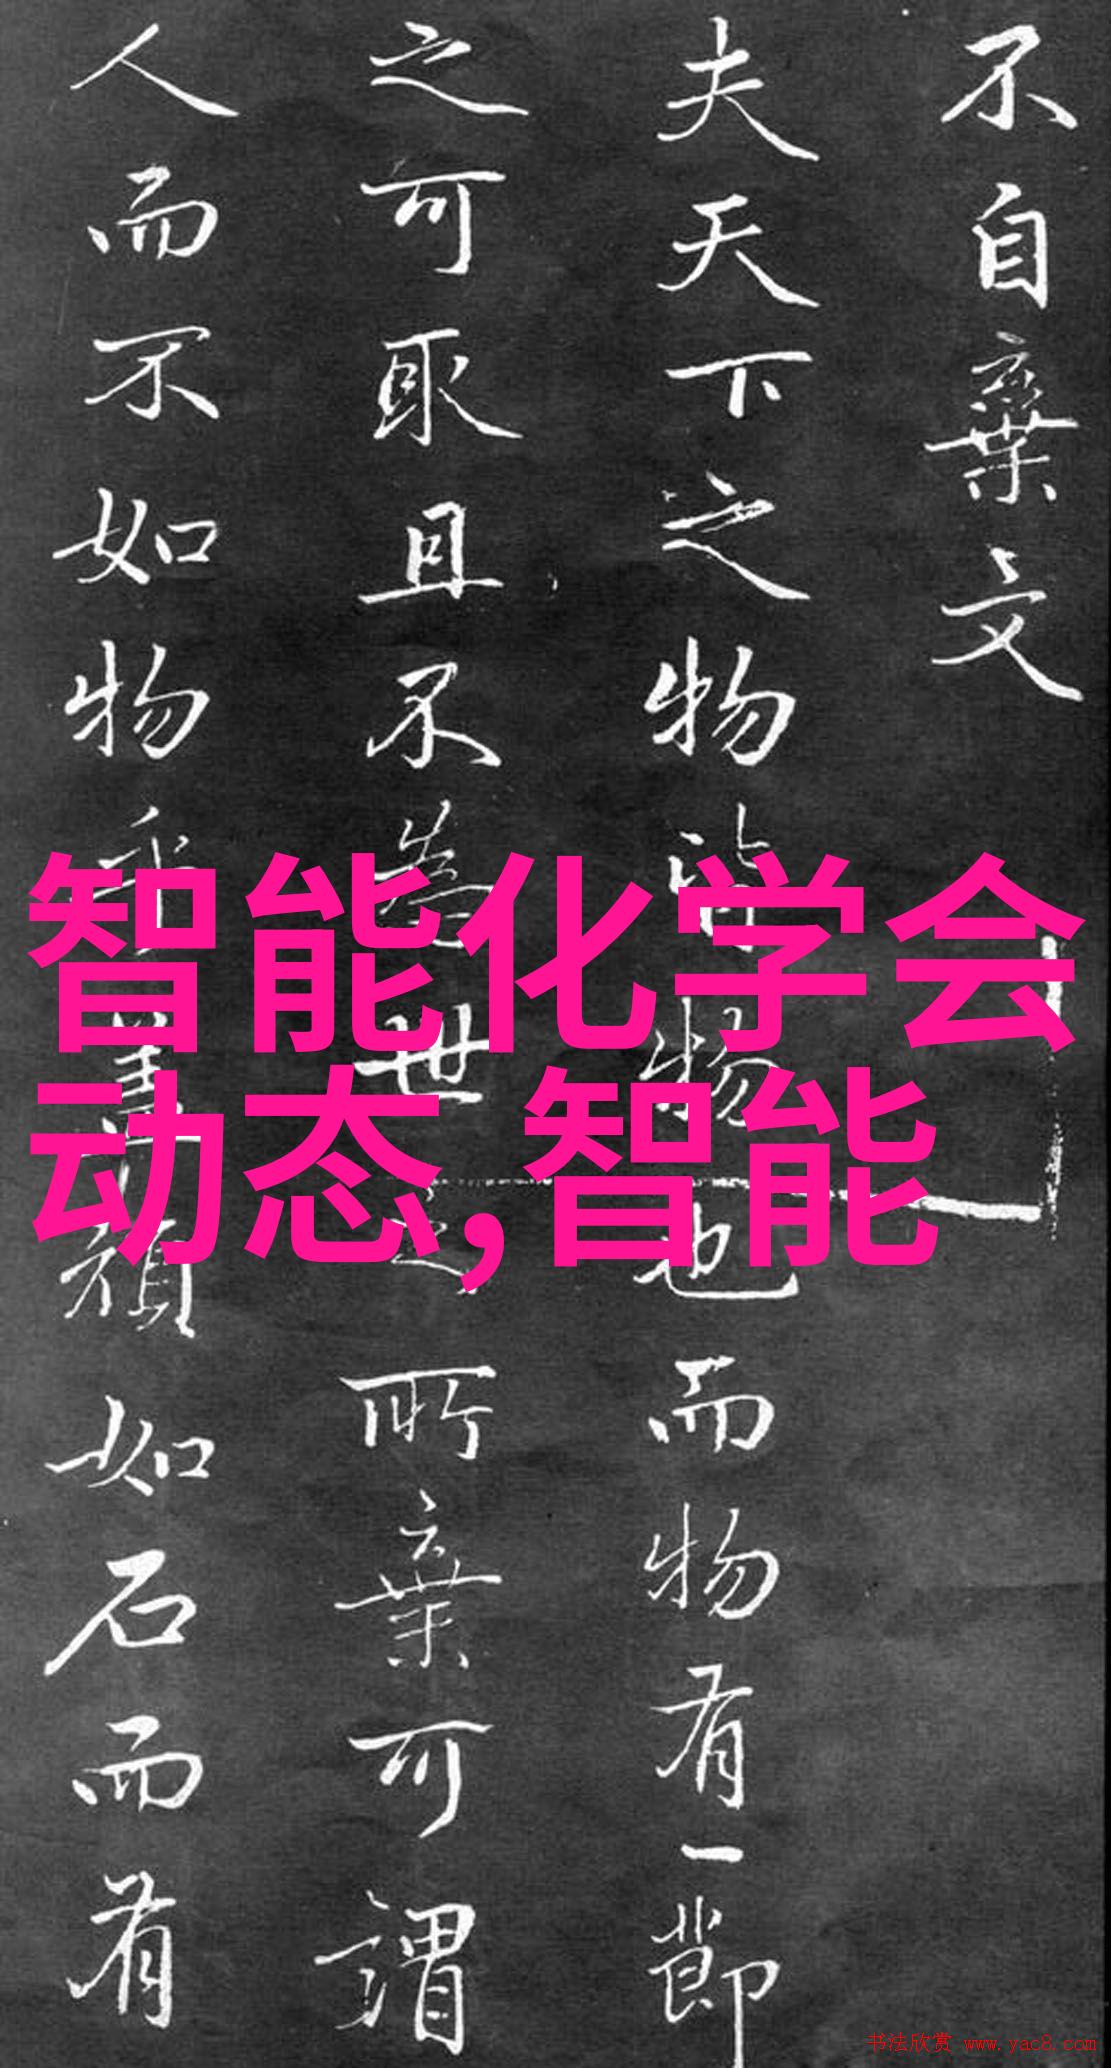 不自棄文
夫天下之物皆物也而物有一節
之可取且不為世之所棄可謂
人而不如物乎蓋頑如石而有
智能化学会
动态,智能
书法欣赏 www.yac8.com